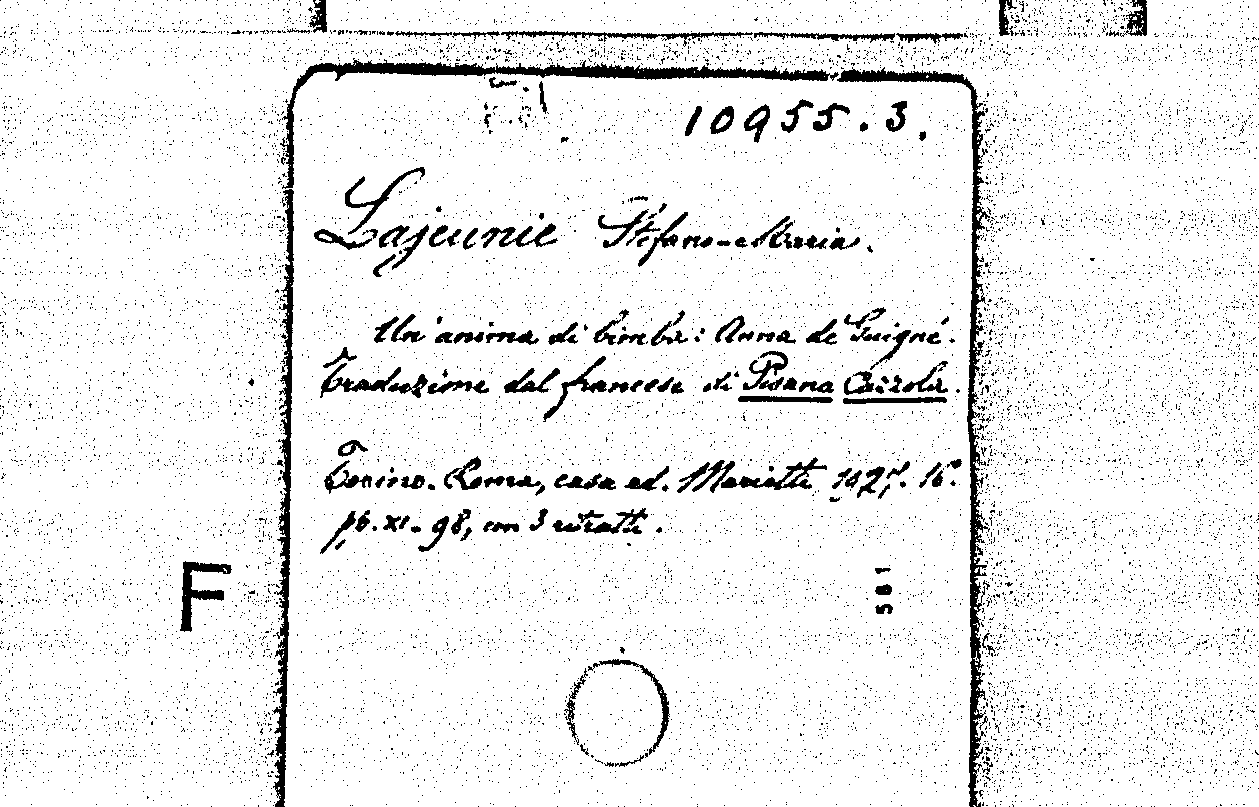 10955.3.
Lajeunie Stefano-Maria.
Un'anima di bimba: Anna de Guigné.
Traduzione dal francese di Pisana Cazzola.
Torino-Roma, casa ed. Marietti 1927. 16°.
pp. XI-98, con 3 ritratti.
F
581